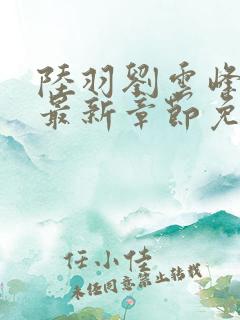 陸羽劉雲峰
最新章節免
任小佳
未经同意禁止转载